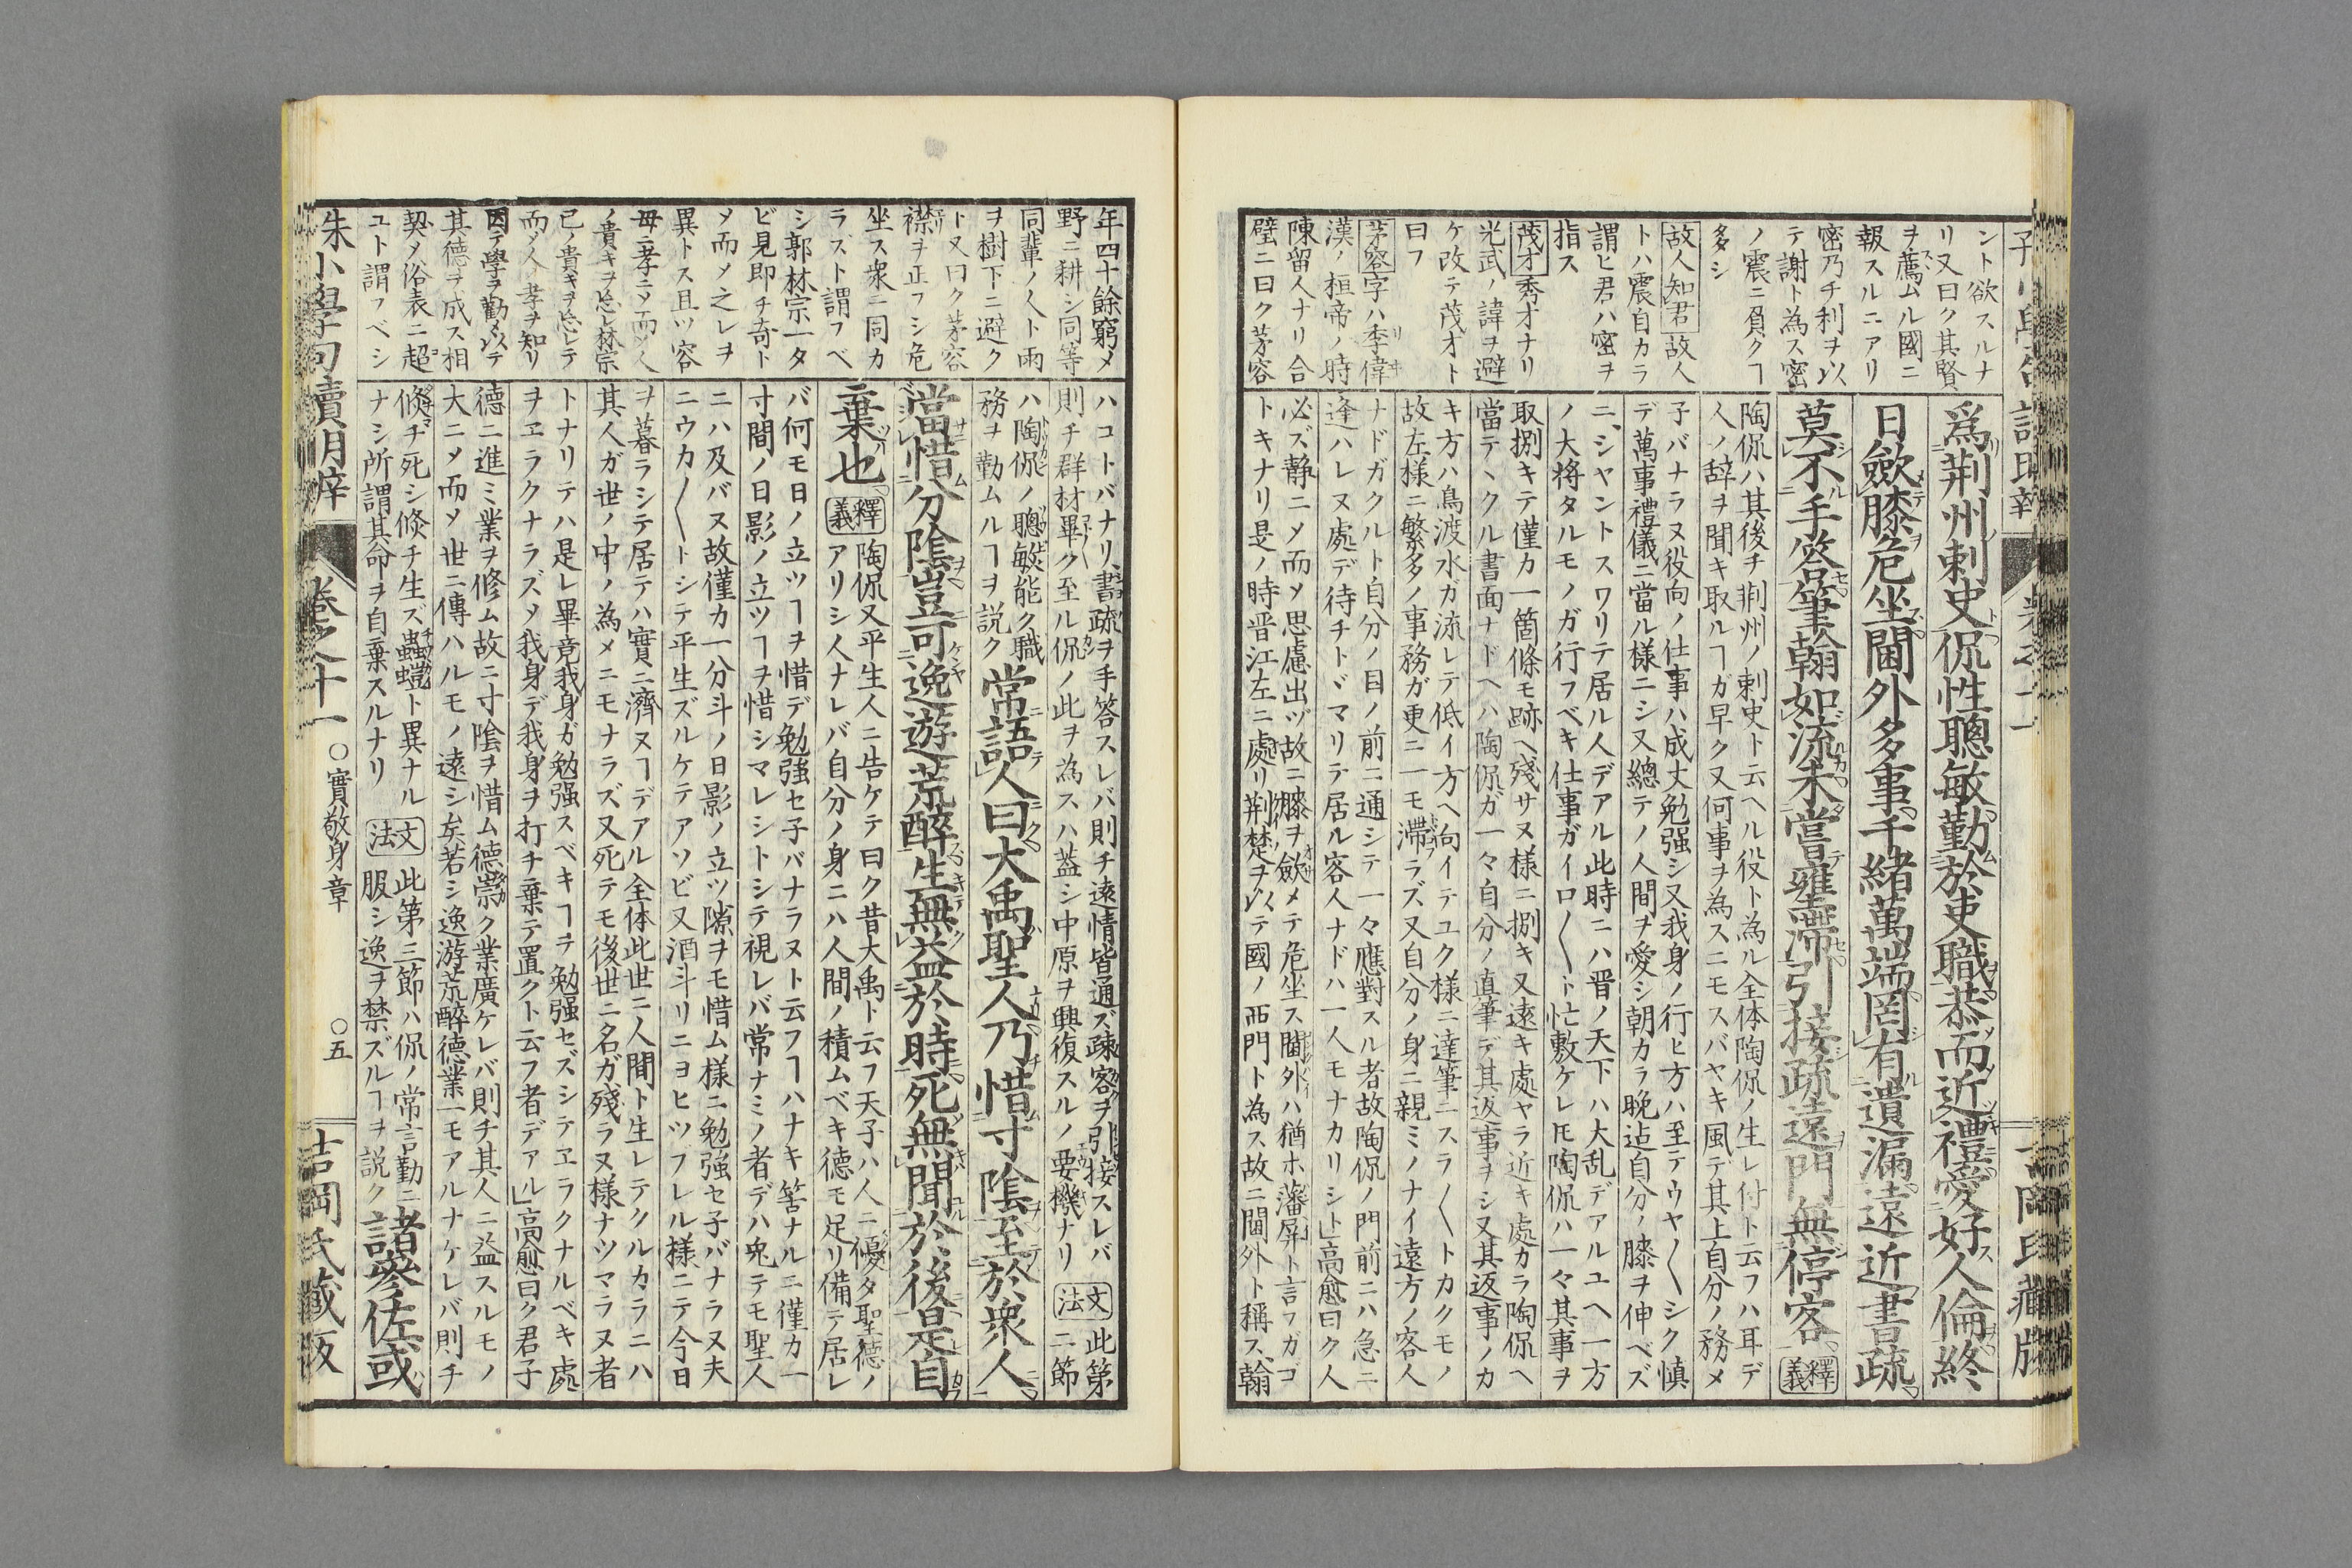 ント欲スルナ
リ又曰ク其賢
ヲ薦ムル國ニ
報スルニアリ
密乃チ利ヲ以
テ謝ト為ス密
ノ震ニ負クヿ
多シ
故人知君 故人
トハ震自カラ
謂ヒ君ハ密ヲ
指ス
茂才 秀才ナリ
光武ノ諱ヲ避
ケ改テ茂才ト
曰フ
茅容 字ハ李偉
漢ノ桓帝ノ時
陳留人ナリ合
璧ニ曰ク茅容
爲荆州刺史侃性聰敏勤於吏職恭而近禮愛好人倫終
日斂膝危坐閫外多事千緒萬端罔有遺漏遠近書疏
莫不手答筆翰如流未嘗壅滯引接疏遠門無停客 釋義
陶侃ハ其後チ荆州ノ刺史ト云ヘル役ト為ル全体陶侃ノ生レ付ト云フハ耳デ
人ノ辞ヲ聞キ取ルヿガ早ク又何事ヲ為スニモスバヤキ風デ其上自分ノ務メ
子バナラヌ役向ノ仕事ハ成丈勉强シ又我身ノ行ヒ方ハ至テウヤ〱シク慎
デ萬事禮儀ニ當ル様ニシ又總テノ人間ヲ愛シ朝カラ晩迠自分ノ膝ヲ伸ベズ
ニ、シヤントスワリテ居ル人デアル此時ニハ晋ノ天下ハ大乱デアルユヘ一方
ノ大将タルモノガ行フベキ仕事ガイロ〱ト忙敷ケレ𪜈陶侃ハ一々其事ヲ
取捌キテ僅カ一箇條モ跡ヘ殘サヌ様ニ捌キ又遠キ處ヤラ近キ處カラ陶侃ヘ
當テヽクル書面ナドヘハ陶侃ガ一々自分ノ直筆デ其返事ヲシ又其返事ノカ
キ方ハ鳥渡水ガ流レテ低イ方ヘ向イテユク様ニ達筆ニスラ〱トカクモノ
故左様ニ繁多ノ事務ガ更ニ一モ滯ラズ又自分ノ身ニ親ミノナイ遠方ノ客人
ナドガクルト自分ノ目ノ前ニ通シテ一々應對スル者故陶侃ノ門前ニハ急ニ
逢ハレヌ處デ待チトヾマリテ居ル客人ナドハ一人モナカリシト」高愈曰ク人
必ズ静ニメ而メ思慮出ヅ故ニ膝ヲ斂メテ危坐ス閫外ハ猶ホ藩屏ト言フガゴ
トキナリ是ノ時晋江左ニ處リ荆楚ヲ以テ國ノ西門ト為ス故ニ閫外ト稱ス翰
年四十餘窮メ
野ニ耕シ同等
同輩ノ人ト雨
ヲ樹下ニ避ク
ト又曰ク茅容
襟ヲ正フシ危
坐ス衆ニ同カ
ラズト謂フベ
シ郭林宗一タ
ビ見即チ奇ト
メ而メ之レヲ
異トス且ツ容
母ニ孝ニメ而メ人
ノ貴キヲ忘レ林宗
已ノ貴キヲ忘レテ
而メ人ノ孝ヲ知リ
因テ學ヲ勸メ以テ
其德ヲ成ス相
契メ俗表ニ超
ユト謂フベシ
ハコトバナリ、書疏ヲ手答スレバ則チ遠情皆通ズ疎客ヲ引接スレバ
則チ群材畢ク至ル侃ノ此ヲ為スハ蓋シ中原ヲ興復スルノ要機ナリ 文法 此第二節
ハ陶侃ノ聰敏能ク職
務ヲ勤ムルヿヲ説ク
常語人曰大禹聖人乃惜寸陰至於衆人
當惜分陰豈可逸遊荒醉生無益於時死無聞於後是自
棄也 釋義
陶侃又平生人ニ告ケテ曰ク昔大禹ト云フ天子ハ人ニ優タ聖德ノ
アリシ人ナレバ自分ノ身ニハ人間ノ積ムベキ德モ足リ備テ居レ
バ何モ日ノ立ツヿヲ惜デ勉強セ子バナラヌト云フヿハナキ筈ナルニ僅カ一
寸間ノ日影ノ立ツヿヲ惜シマレシトシテ視レバ常ナミノ者デハ兎テモ聖人
ニハ及バヌ故僅カ一分斗ノ日影ノ立ツ隙ヲモ惜ム様ニ勉強セ子バナラヌ夫
ニウカ〱トシテ平生ズルケテアソビ又酒斗リニヨヒツブレル様ニテ今日
ヲ暮ラシテ居テハ實ニ濟ヌヿデアル全体此世ニ人間ト生レテクルカラニハ
其人ガ世ノ中ノ為メニモナラズ又死テモ後世ニ名ガ殘ラヌ様ナツマラヌ者
トナリテハ是レ畢竟我身ガ勉强スベキヿヲ勉强セズシテヱラクナルベキ處
ヲヱラクナラズメ我身デ我身ヲ打チ棄テ置クト云フ者デアル」高愈曰ク君子
德ニ進ミ業ヲ修ム故ニ寸陰ヲ惜ム德崇ク業廣ケレバ則チ其人ニ益スルモノ
大ニメ而メ世ニ傳ハルモノ遠シ矣若シ逸游荒醉德業一モアルナケレバ則チ
倏チ死シ倏チ生ズ蟲螘ト異ナル
ナシ所謂其命ヲ自棄スルナリ 文法
此第三節ハ侃ノ常言勤ニ
服シ逸ヲ禁ズルヿヲ説ク
諸參佐或
朱小學句讀月梓 卷之十一 ○實敬身章 ○五 吉岡氏藏版